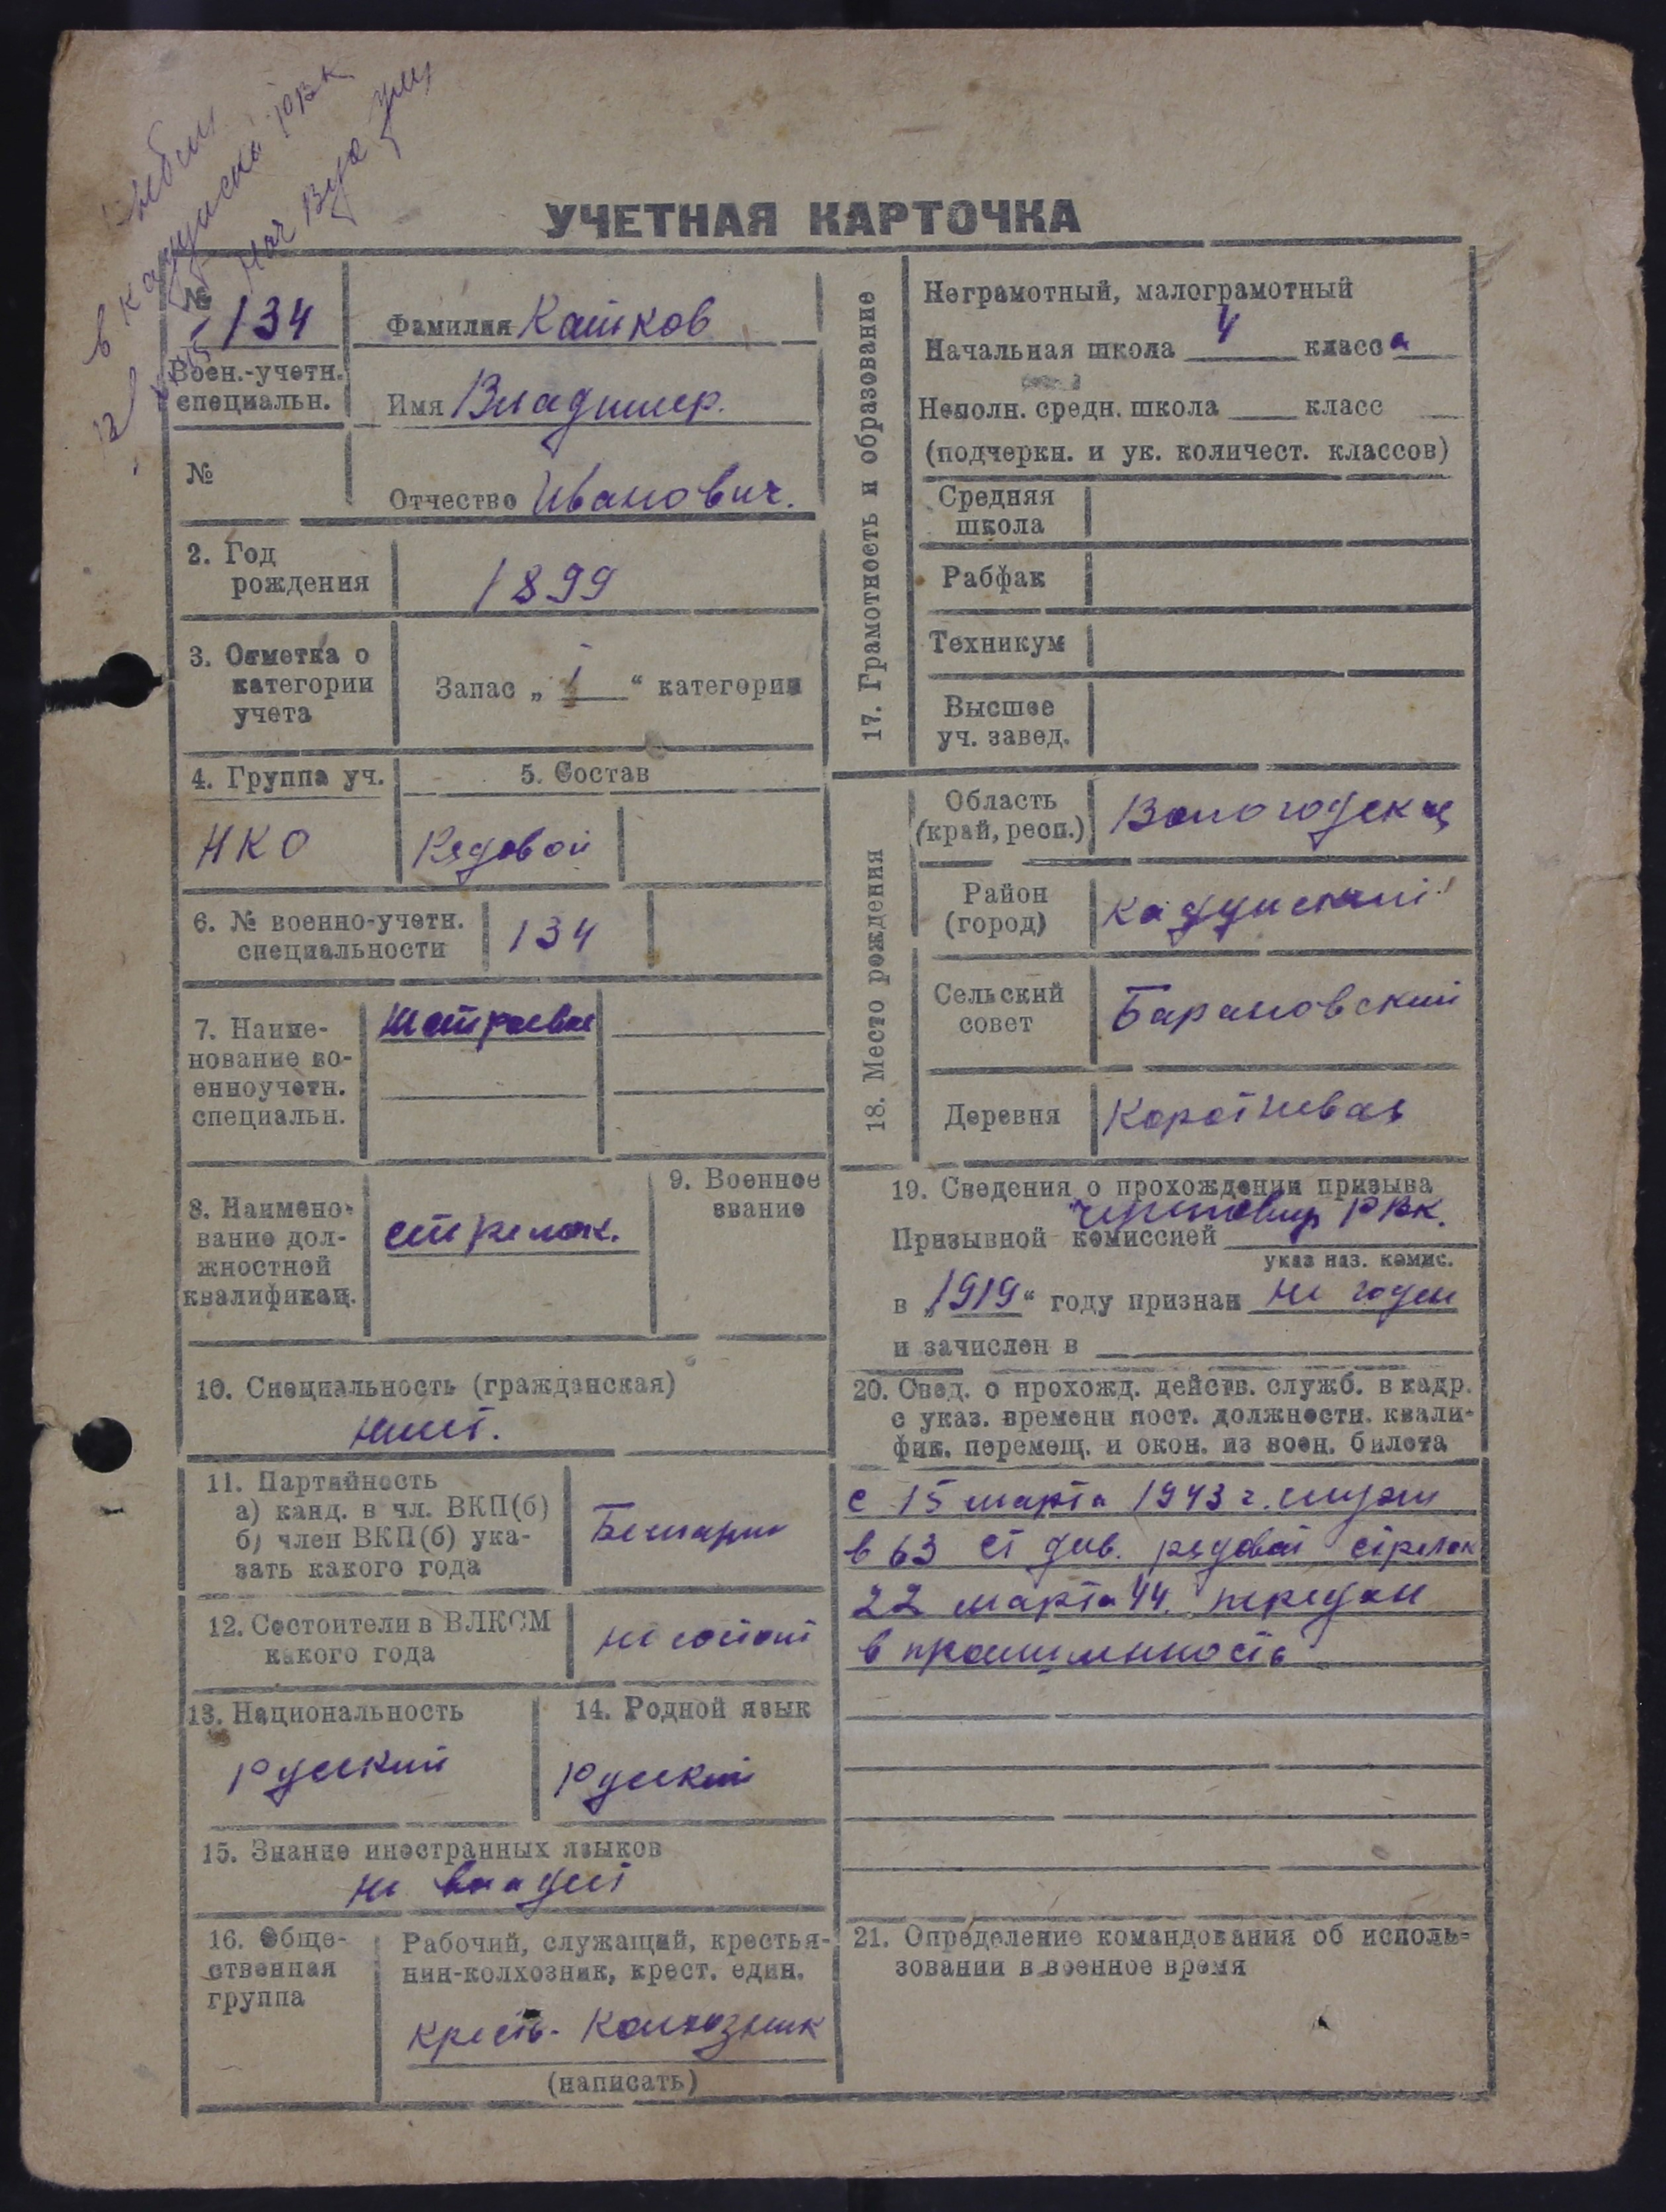 в кадуйский РВК
УЧЕТНАЯ КАРТОЧКА
№ 134
Воен.-учетн.
специальн.
№
Фамилия Кашков
Имя Владимир.
Отчество Иванович.
2. Год
рождения
1899
3. Отметка о
категории
учета
Запас „ I “ категории
4. Группа уч.
НКО
5. Состав
Рядовой
6. № военно-учетн.
специальности
134
7. Наиме-
нование во-
енноучетн.
специальн.
8. Наимено-
вание дол-
жностной
квалификац.
стрелок.
9. Военное
звание
10. Специальность (гражданская)
нет.
11. Партийность
а) канд. в чл. ВКП(б)
б) член ВКП(б) ука-
зать какого года
Беспарт
12. Состоит ли в ВЛКСМ
какого года
не состоит
13. Национальность
Русский
14. Родной язык
Русский
15. Знание иностранных языков
не владеет
16. Обще-
ственная
группа
Рабочий, служащий, крестья-
нин-колхозник, крест. един.
крест- Колхозник
(написать)
17. Грамотность и образование
Неграмотный, малограмотный
Начальная школа 4 класса
Неполн. средн. школа класс
(подчеркн. и ук. количест. классов)
Средняя
школа
Рабфак
Техникум
Высшее
уч. завед.
18. Место рождения
Область
(край, респ.)
Вологодская
Район
(город)
Кадуйский
Сельский
совет
Барановский
Деревня
19. Сведения о прохождении призыва
Призывной комиссией РВК.
указ наз. комис.
в „1919“ году признан не годен
и зачислен в
20. Свед. о прохожд. действ. служб. в кадр.
с указ. времени пост. должности. квали-
фик. перемещ. и окон. из воен. билета
с 15 марта 1943 г. служи
в 63 ст див. рядовой стрелок
22 марта 44. передан
в промышленность
21. Определение командования об исполь-
зовании в военное время